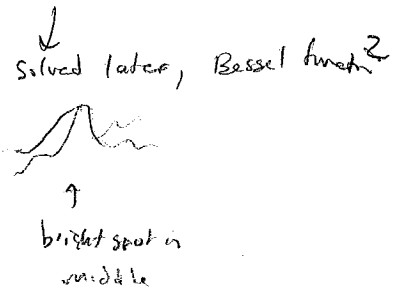 Solved later, Bessel functn²
bright spot in
middle